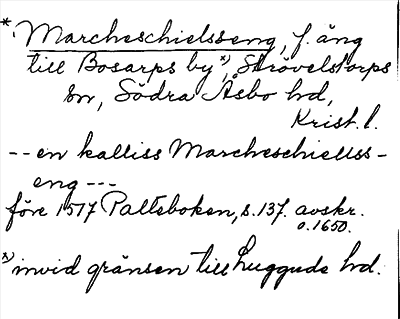 * Marcheschielsseng, f. äng
till Bosarps by x), Strövelstorps
sn, Södra Åsbo hd,
Krist. l.
-- en kalliss Marcheschiellss-
eng ---
före 1517 Palteboken, s. 137. avskr.
o. 1650.
x) invid gränsen till Luggude hd.